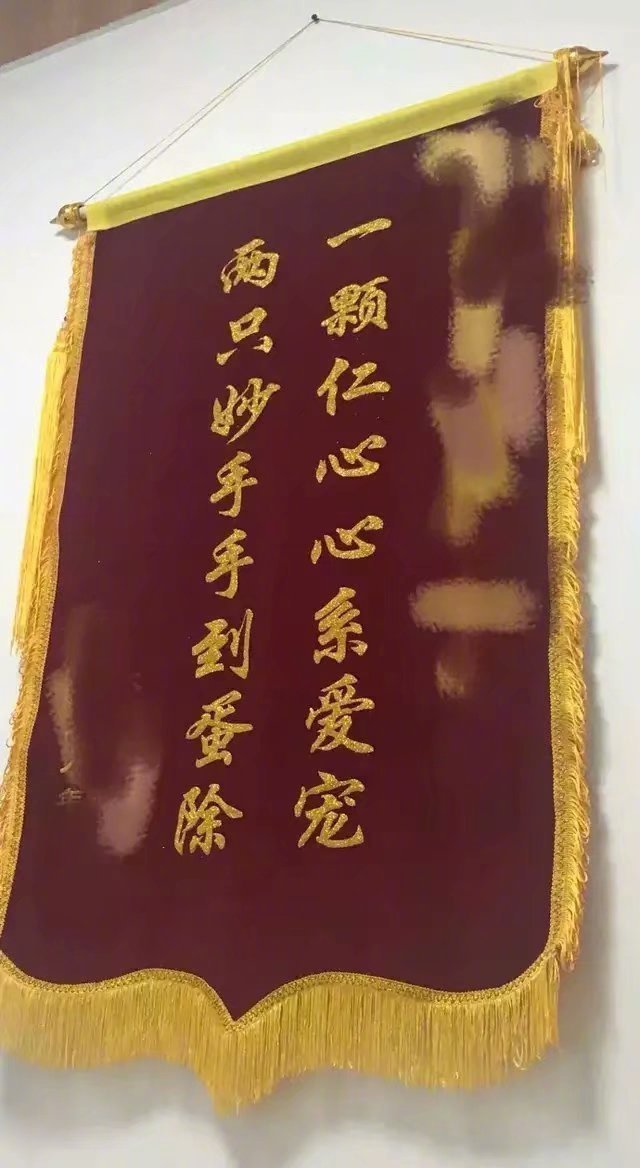 一颗仁心心系爱宠
两只妙手手到蛋除